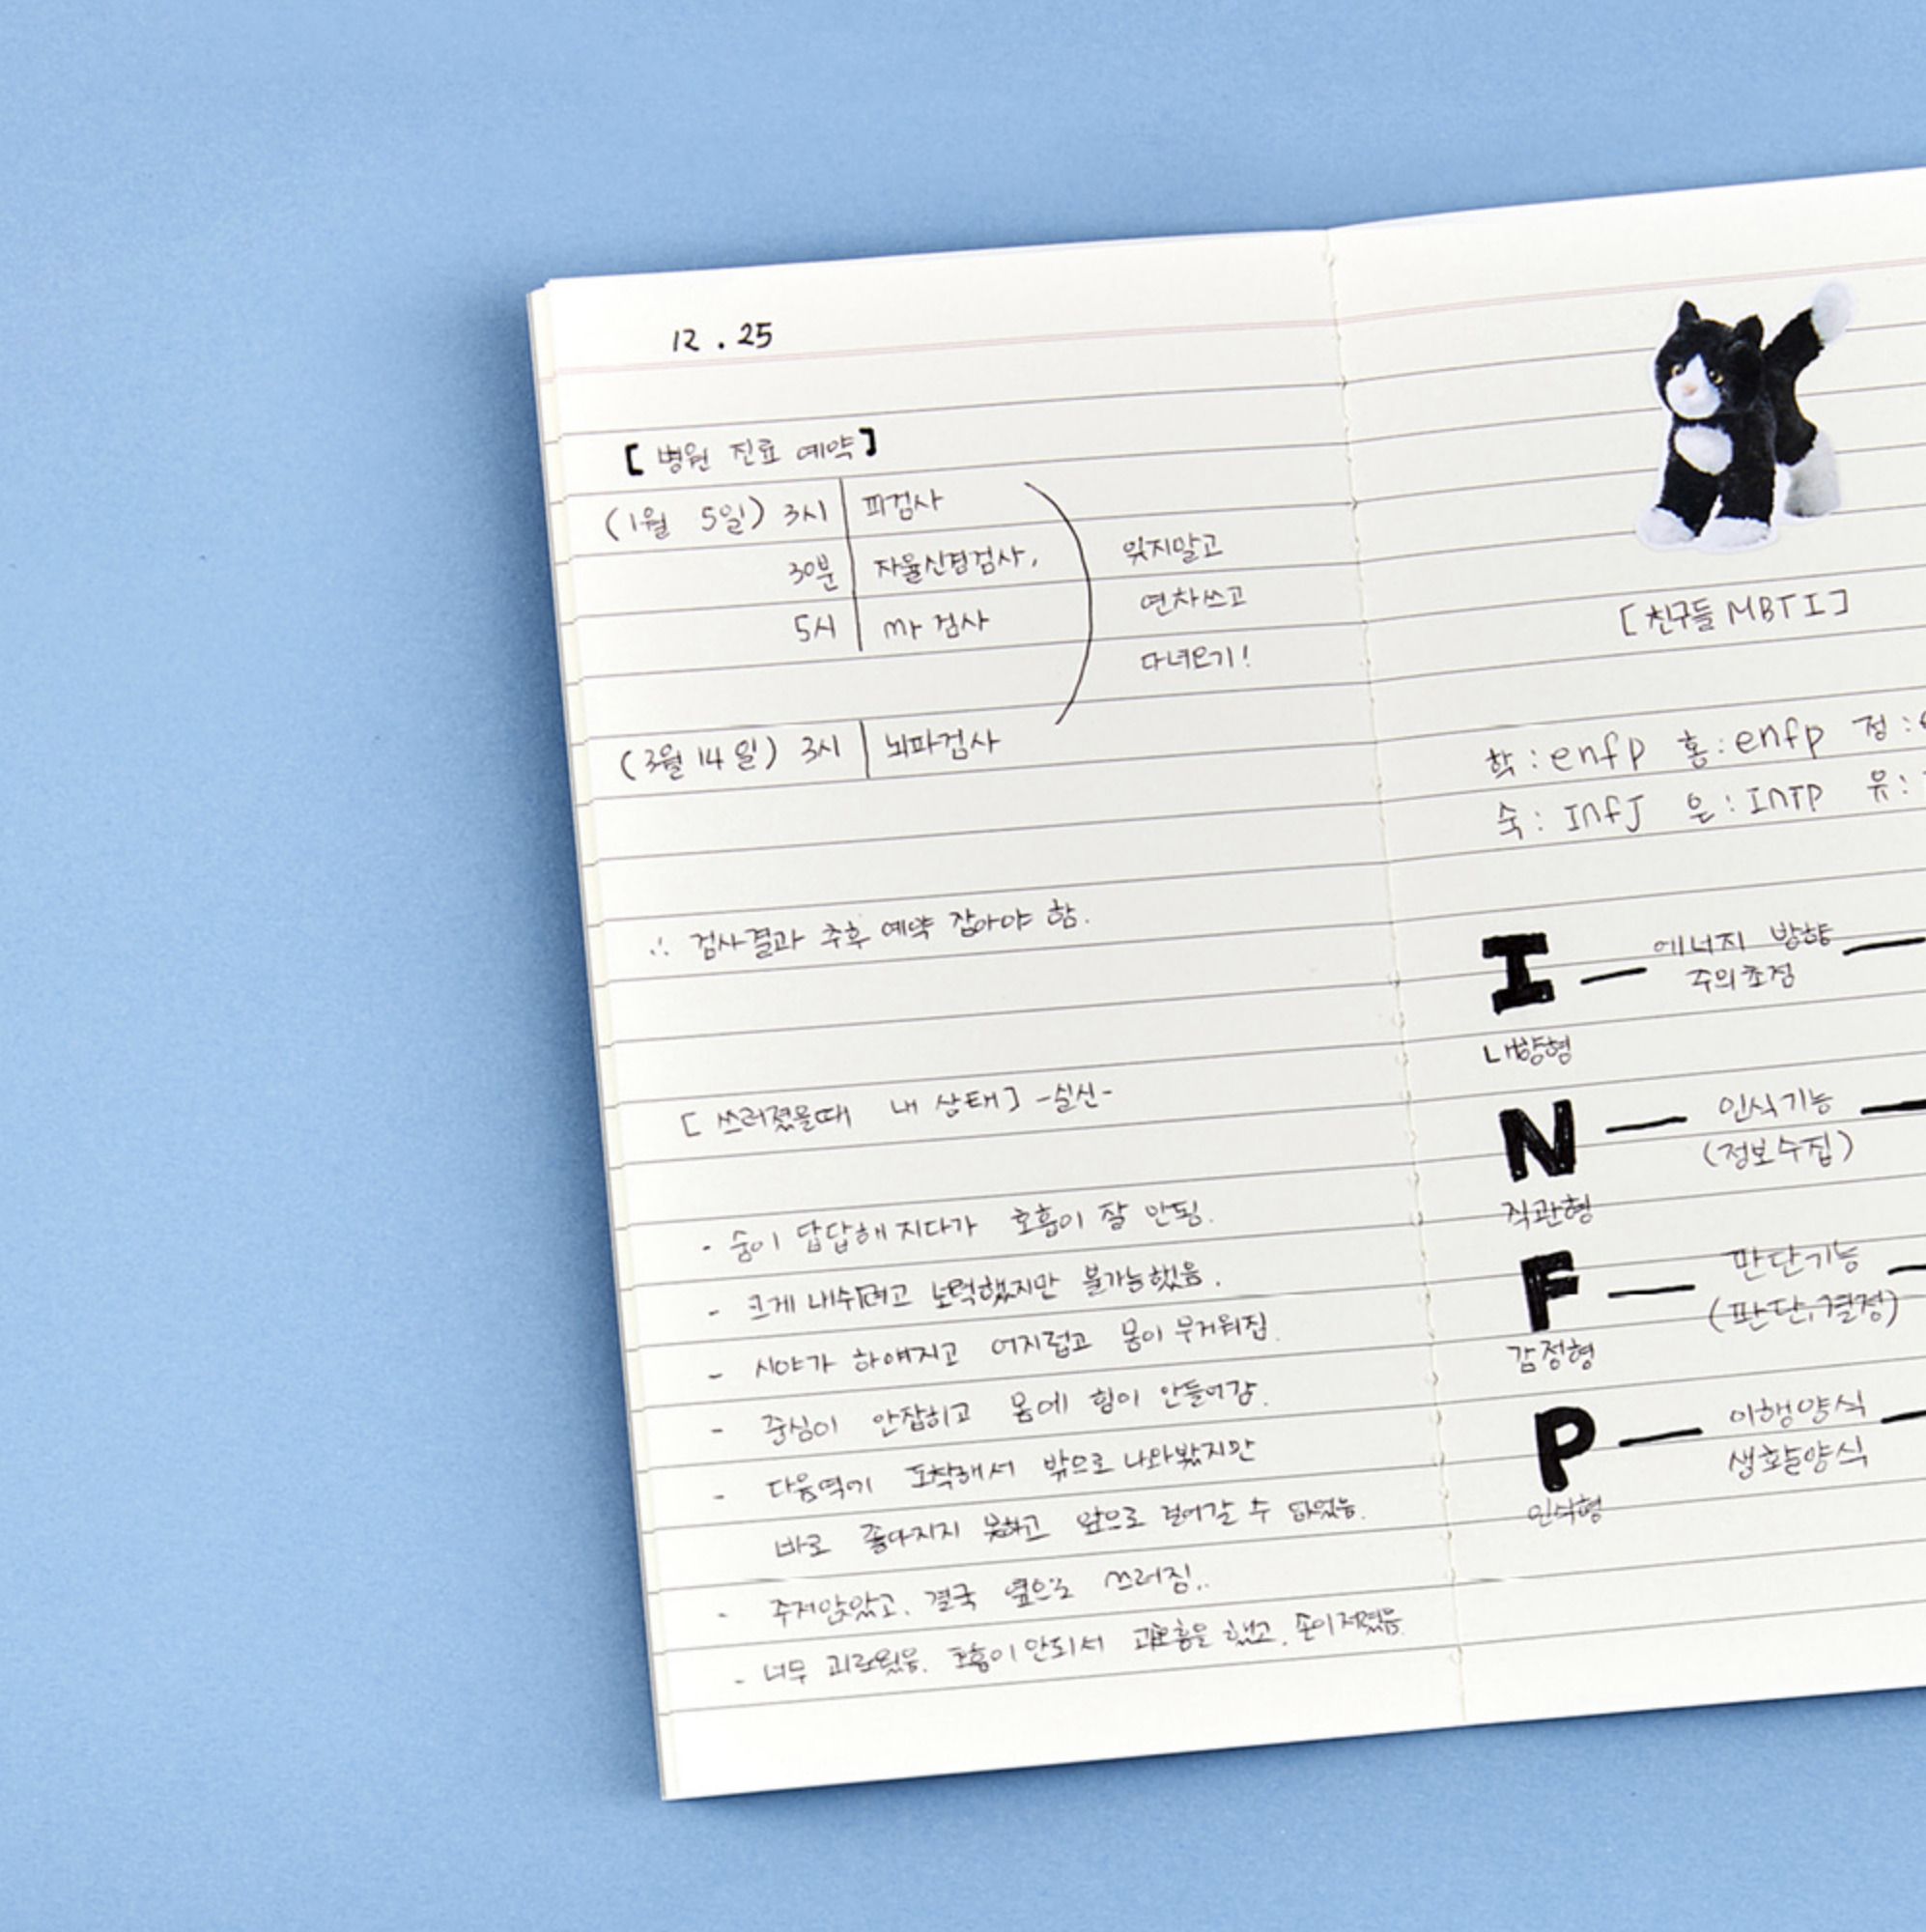 12.25
[병원 진료 예약]
(1월 5일) 3시 피검사
30분 자율신경검사,
5시 mr 검사
잊지말고
연차쓰고
다녀오기!
(3월 14일) 3시 뇌파검사
∴ 검사결과 추후 예약 잡아야 함.
[쓰러졌을때 내 상태] -실신-
- 숨이 답답해지다가 호흡이 잘 안됨.
- 크게 내쉬려고 노력했지만 불가능했음.
- 시야가 하얘지고 어지럽고 몸이 무거워짐.
- 중심이 안잡히고 몸에 힘이 안들어감.
- 다음역에 도착해서 밖으로 나와봤지만
바로 좋아지지 못하고 앞으로 걸어갈 수 없었음.
- 주저앉았고, 결국 옆으로 쓰러짐..
- 너무 괴로웠음. 호흡이 안되서 과호흡을 했고, 손이 저렸음.
[친구들 MBTI]
학 : enfp 홍 : enfp 정 :
숙 : INfJ 은 : INTP 유 :
I — 에너지 방향 —
주의초점
내향형
N — 인식기능 —
(정보수집)
직관형
F — 판단기능 —
(판단,결정)
감정형
P — 이행양식 —
생활양식
인식형